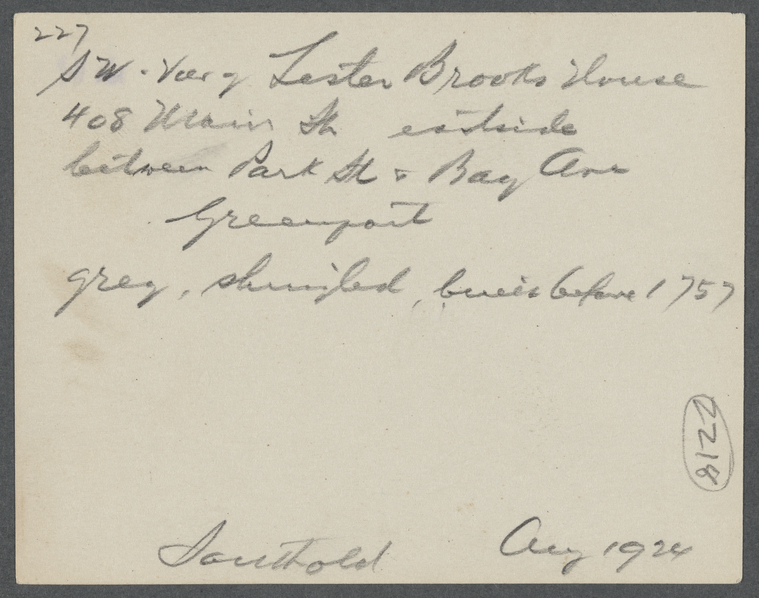 227
SW. View of Lester Brooks House
408 Main St. eastside
between Park St & Bay Ave
Greenport
grey, shingled, built before 1757
2218
Southold Aug 1924